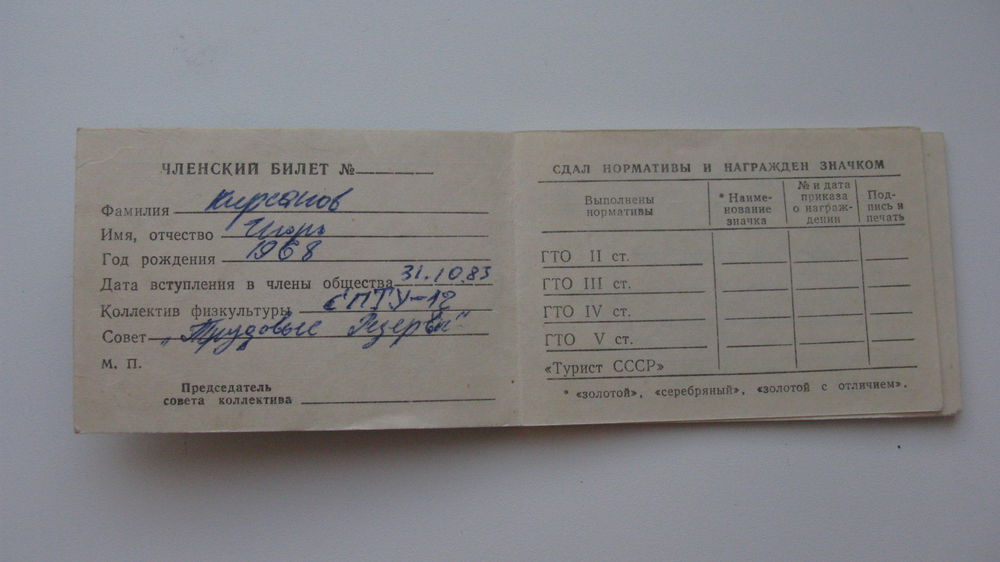 ЧЛЕНСКИЙ БИЛЕТ №
Фамилия Кирсанов
Имя, отчество Игорь
Год рождения 1968
Дата вступления в члены общества 31.10.83
Коллектив физкультуры СПТУ-12
Совет „Трудовые Резервы"
М. П.
Председатель
совета коллектива
СДАЛ НОРМАТИВЫ И НАГРАЖДЕН ЗНАЧКОМ
Выполнены
нормативы
* Наиме-
нование
значка
№ и дата
приказа
о награж-
дении
Под-
пись и
печать
ГТО II ст.
ГТО III ст.
ГТО IV ст.
ГТО V ст.
«Турист СССР»
* «золотой», «серебряный», «золотой с отличием».